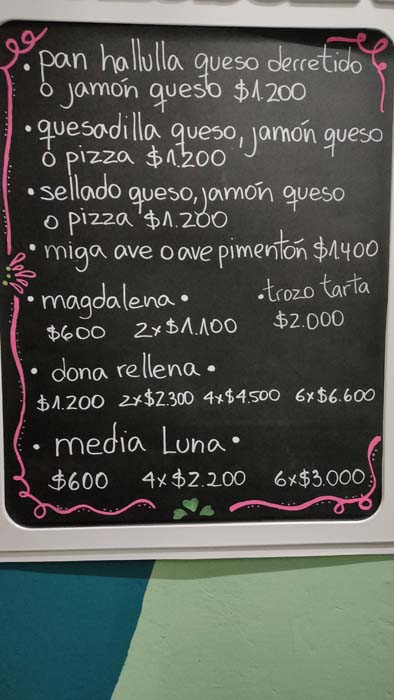 · pan hallulla queso derretido
o jamón queso $1.200
· quesadilla queso, jamón queso
o pizza $1.200
· sellado queso, jamón queso
o pizza $1.200
· miga ave o ave pimentón $1400
· magdalena ·
$600 2x$1.100
· trozo tarta
$2.000
· dona rellena ·
$1.200 2x$2.300 4x$4.500 6x$6.600
· media Luna ·
$600 4x$2.200 6x$3.000